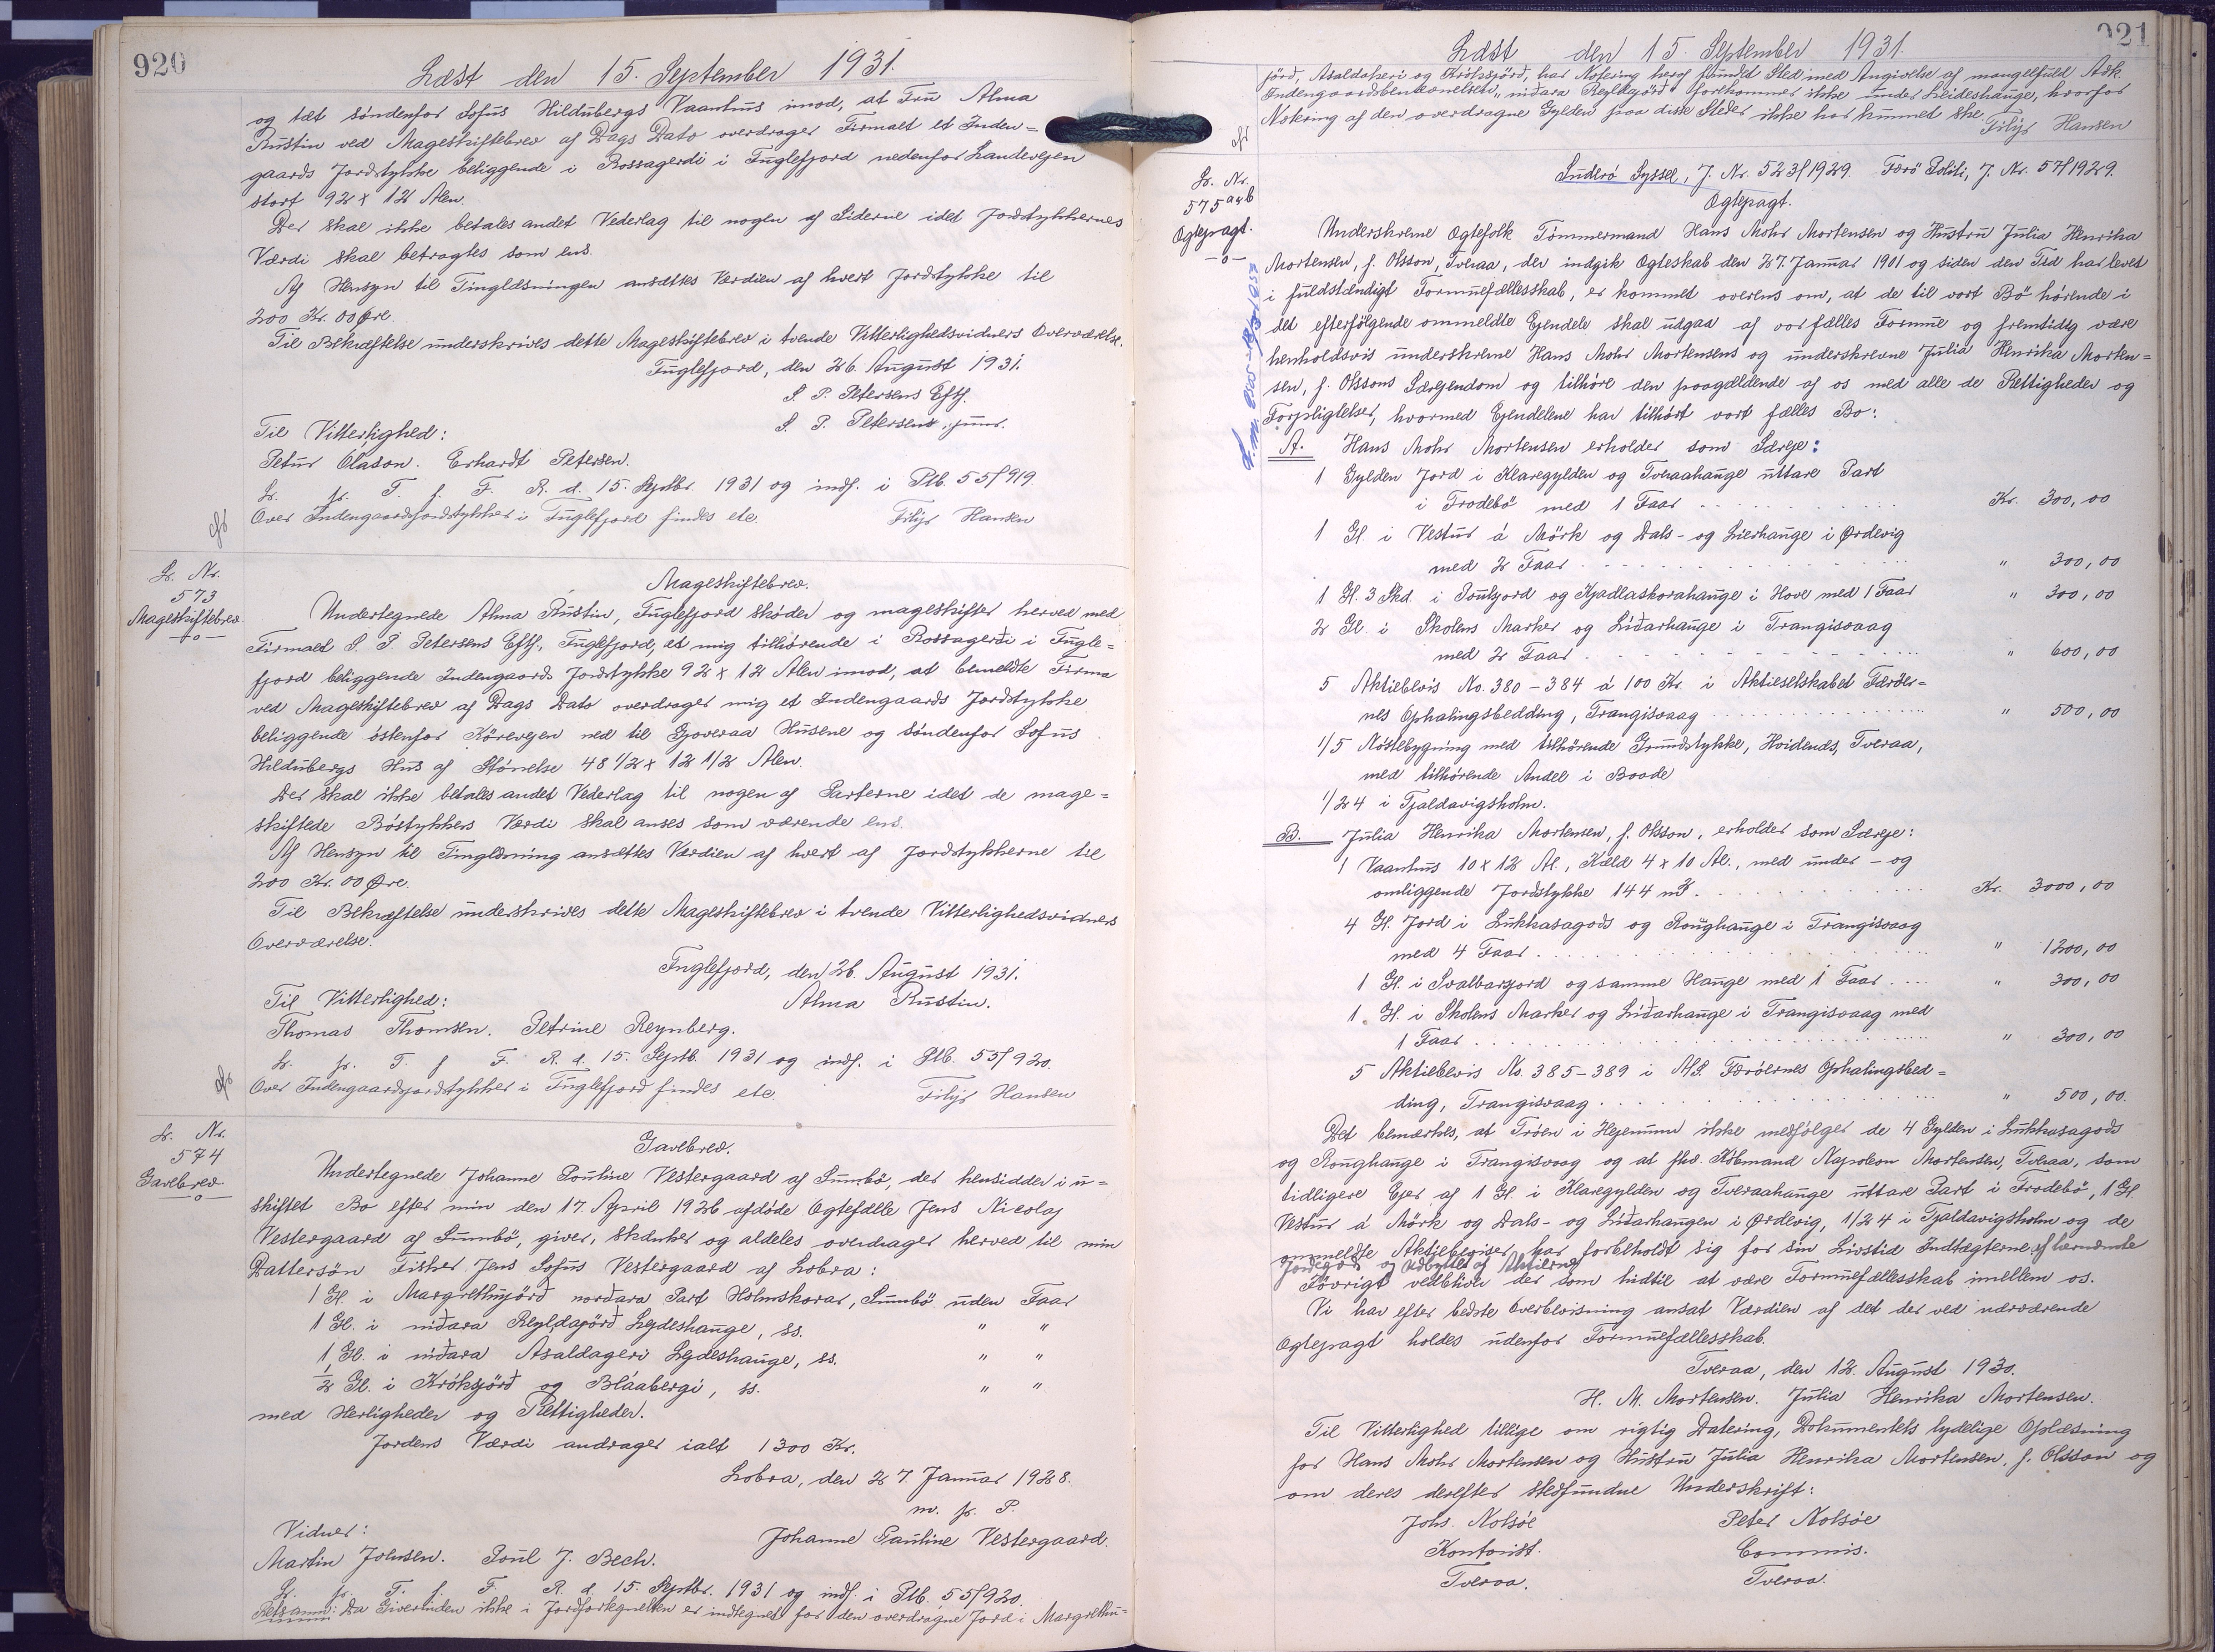 920
Læst den 15. September 1931.
og tæt søndenfor Sofus Hildubergs Vaanhus imod, at Fru Alma
Rustin ved Mageskiftebrev af Dags Dato overdrager Firmaet et Inden=
gaards Jordstykke beliggende i Rossagerdi i Fuglefjord nedenfor Landevejen
stort 92 x 12 Alen.
Der skal ikke betales andet Vederlag til nogen af Siderne idet Jordstykkernes
Værdi skal betragtes som ens.
Af Hensyn til Tinglæsningen ansættes Værdien af hvert Jordstykke til
200 Kr. 00 Øre.
Til Bekræftelse underskrives dette Mageskiftebrev i tvende Vitterlighedsvidners Overværelse.
Fuglefjord, den 26. August 1931.
S. P. Petersens Eftf.
S. P. Petersen, junr.
Til Vitterlighed:
Petur Olason. Erhardt Petersen.
Lr. fr. T. f. F. R. d. 15. Septbr. 1931 og indf. i Ptb. 55f 919
Over Indengaardsjordstykker i Fuglefjord findes etc. Filip Hansen
Lr. Nr.
573
Mageskiftebrev
-o-
Mageskiftebrev.
Undertegnede Alma Rustin, Fuglefjord skøder og mageskifter herved med
Firmaet S. P. Petersens Eftf., Fuglefjord, et mig tilhørende i Rossagerði i Fugle=
fjord beliggende Indengaards Jordstykke 92 x 12 Alen imod, at bemeldte Firma
ved Mageskiftebrev af Dags Dato overdrager mig et Indengaards Jordstykke
beliggende østenfor Kørevejen ned til Gjoveraa Husene og søndenfor Sofus
Hildubergs Hus af Størrelse 48 1/2 x 12 1/2 Alen.
Der skal ikke betales andet Vederlag til nogen af Parterne idet de mage=
skiftede Bøstykkers Værdi skal anses som værende ens.
Af Hensyn til Tinglæsning ansættes Værdien af hvert af Jordstykkerne til
200 Kr. 00 Øre.
Til Bekræftelse underskrives dette Mageskiftebrev i tvende Vitterlighedsvidners
Overværelse.
Fuglefjord, den 26. August 1931.
Til Vitterlighed: Alma Rustin.
Thomas Thomsen. Petrine Reynberg.
Lr. fr. T. f. F. R. d. 15. Septb. 1931 og indf. i Ptb. 55f 920.
Over Indengaardsjordstykker i Fuglefjord findes etc. Filip Hansen
Lr. Nr.
574
Gavebrev
-o-
Gavebrev.
Undertegnede Johanne Pouline Vestergaard af Sumbø, der hensidder i u=
skiftet Bo efter min den 17. April 1926 afdøde Ægtefælle Jens Nicolaj
Vestergaard af Sumbø, giver, skænker og aldeles overdrager herved til min
Dattersøn Fisker Jens Sofus Vestergaard af Lobra:
1 Gl. i Margrethujørð norðara Part Hólmskorar, Sumbø uden Faar
1 Gl. i niðara Regldajørð Lejdeshauge, ss. " "
1 Gl. i niðara Asaldageri Lejdeshauge, ss. " "
1/2 Gl. i Króksjørð og Bláabergi, ss. " "
med Herligheder og Rettigheder.
Jordens Værdi andrager ialt 1300 Kr.
Lobra, den 27. Januar 1928.
m. f. P.
Vidner: Johanne Pauline Vestergaard.
Martin Johnsen. Poul J. Bech.
Lr. fr. T. f. F. R. d. 15. Septbr. 1931 og indf. i Ptb. 55f 920.
Retsanm: Da Giverinden ikke i Jordfortegnelsen er indtegnet for den overdragne Jord i Margrethu=
921
Læst den 15. September 1931.
jørð, Asaldakeri og Króksjørð, har Notering heraf fundet Sted med Angivelse af mangelfuld Adk.
Indengaardsbenævnelsen "niðara Regldgjørð" forekommer ikke under Leideshauge, hvorfor
Notering af den overdragne Gylden paa disse Steder ikke har kunnet ske.
Filip Hansen
Lr. Nr.
575 a&b
Ægtepagt.
-o-
Suderø Syssel, J. Nr. 523/1929. Færø Politi, J. Nr. 57/1929.
Ægtepagt.
Underskrevne Ægtefolk Tømmermand Hans Mohr Mortensen og Hustru Julia Henrika
Mortensen, f. Olsson, Tveraa, der indgik Ægteskab den 27. Januar 1901 og siden den Tid har levet
i fuldstændigt Formuefællesskab, er kommet overens om, at de til vort Bo hørende i
det efterfølgende ommeldte Ejendele skal udgaa af vor fælles Formue og fremtidig være
henholdsvis underskrevne Hans Mohr Mortensens og underskrevne Julia Henrika Morten=
sen, f. Olssons Særejendom og tilhøre den paagældende af os med alle de Rettigheder og
Forpligtelser, hvormed Ejendelene har tilhørt vort fælles Bo:
A. Hans Mohr Mortensen erholder som Særeje:
1 Gylden Jord i Klaregylden og Tveraahauge uttare Part
i Frodebø med 1 Faar Kr. 300,00
1 Gl. i Vestur á Mørk og Dals- og Lierhauge i Ørdevig
med 2 Faar " 300,00
1 Gl. 3 Skd. i Poutjord og Kjadlaskorahauge i Hove med 1 Faar " 300,00
2 Gl. i Skolens Marker og Líðarhauge i Trangisvaag
med 2 Faar " 600,00
5 Aktiebevis No. 380-384 á 100 Kr. i Aktieselskabet Færøer=
nes Ophalingsbedding, Trangisvaag " 500,00
1/5 Nøstebygning med tilhørende Grundstykke, Hvidenæs, Tveraa,
med tilhørende Andel i Baade
1/24 i Tjaldavigsholm.
B. Julia Henrika Mortensen, f. Olsson, erholder som Særeje:
1 Vaanhus 10 x 12 Al., Kæld 4 x 10 Al., med under- og
omliggende Jordstykke 144 m². Kr. 3000,00
4 Gl. Jord i Lukkasagods og Roughauge i Trangisvaag
med 4 Faar " 1200,00
1 Gl. i Svalbarjord og samme Hauge med 1 Faar " 300,00
1 Gl. i Skolens Marker og Líðarhauge i Trangisvaag med
1 Faar " 300,00
5 Aktiebevis No. 385-389 i A/S. Færøernes Ophalingsbed=
ding, Trangisvaag " 500,00.
Det bemærkes, at Trøen i Hejenum ikke medfølger de 4 Gylden i Lukkasagods
og Roughauge i Trangisvaag og at fhv. Købmand Napoleon Mortensen, Tveraa, som
tidligere Ejer af 1 Gl. i Klaregylden og Tveraahauge uttare Part i Frodebø, 1 Gl.
Vestur á Mørk og Dals- og Líðarhaugen i Ørdevig, 1/24 i Tjaldavigsholm og de
ommeldte Aktiebeviser har forbeholdt sig for sin Livstid Indtægterne af bemeldte
Jordegods og Udbyttet af Aktierne
Iøvrigt vedbliver der som hidtil at være Formuefællesskab imellem os.
Vi har efter bedste Overbevisning ansat Værdien af det der ved nærværende
Ægtepagt holdes udenfor Formuefællesskab.
Tveraa, den 12. August 1930.
H. M. Mortensen. Julia Henrika Mortensen.
Til Vitterlighed tillige om rigtig Datering, Dokumentets tydelige Oplæsning
for Hans Mohr Mortensen og Hustru Julia Henrika Mortensen, f. Olsson og
om deres derefter stedfundne Underskrift:
Johs. Nolsøe Peter Nolsøe
Kontorist. Commis.
Tveraa. Tveraa.